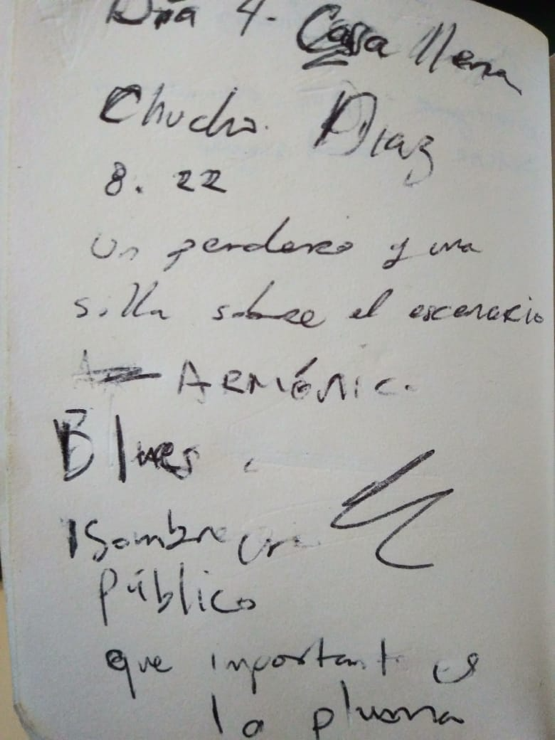 Día 4. Casa llena
Chucho Díaz
8. 22
Un pandero y una
silla sobre el escenario
Armónic.
Blues
Sombre
Público
que important es
la pluma